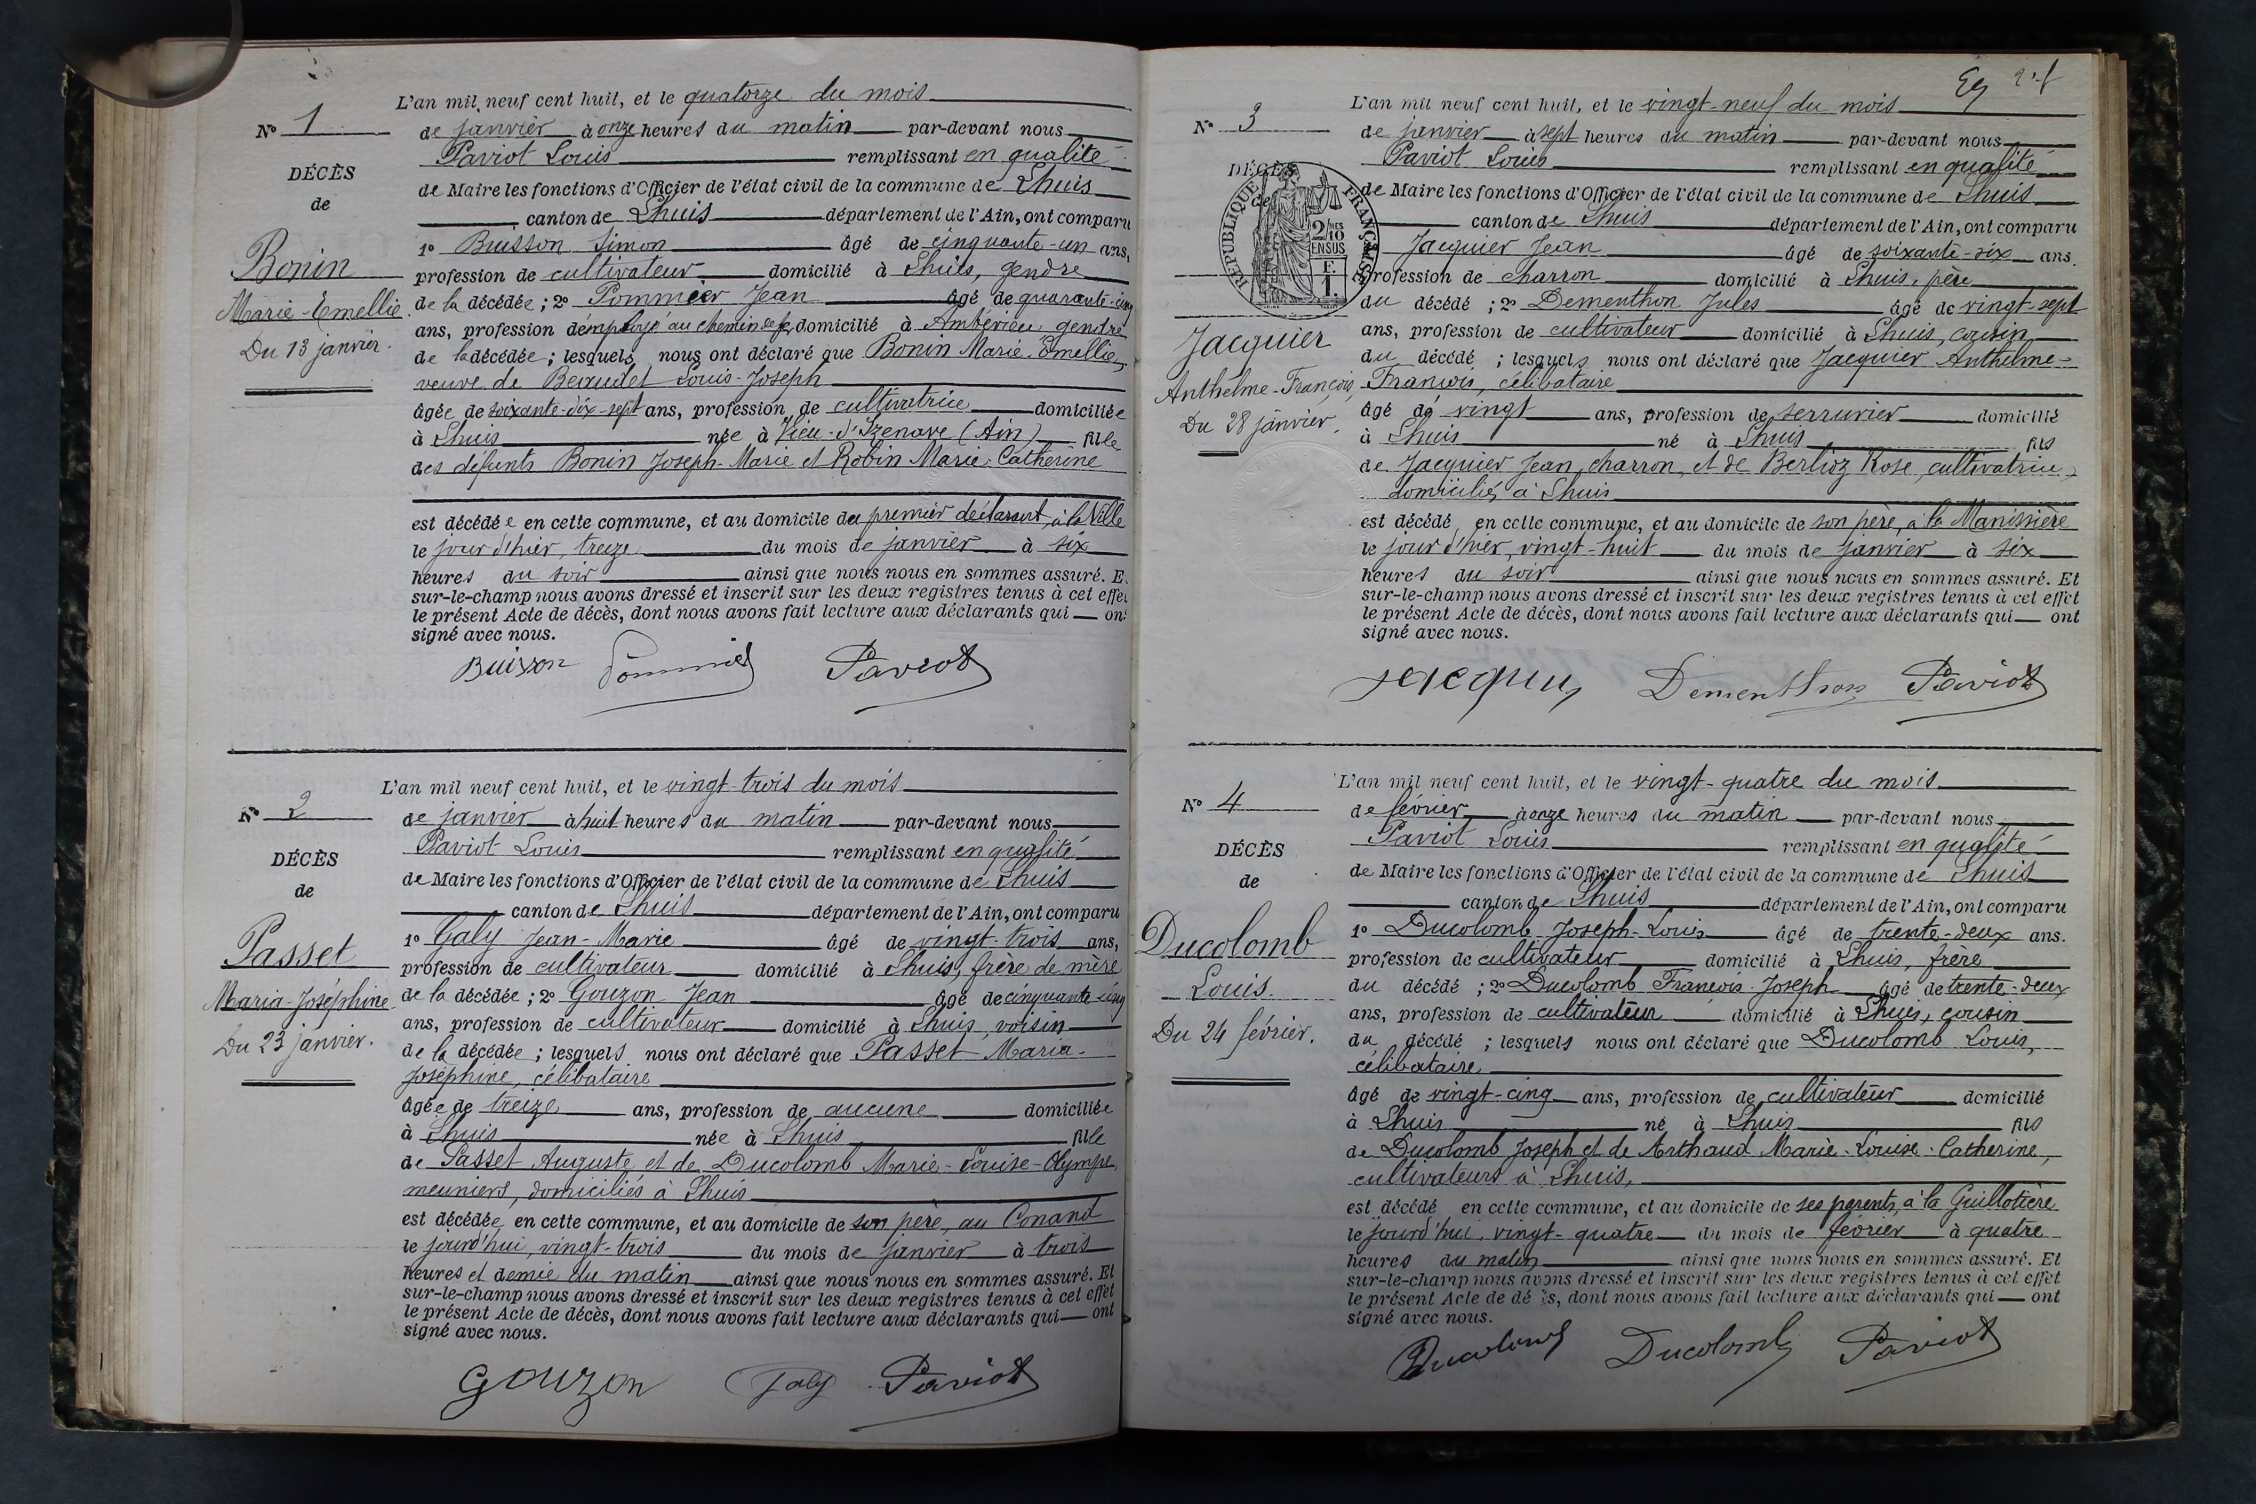 L'an mil neuf cent huit, et le quatorze du mois
N° 1
de janvier à onze heures du matin par-devant nous
Paviot Louis remplissant en qualité
DÉCÈS
de Maire les fonctions d'Officier de l'état civil de la commune de Lhuis
de
canton de Lhuis département de l'Ain, ont comparu
1° Buisson Simon âgé de cinquante-un ans,
Bonin
profession de cultivateur domicilié à Lhuis, gendre
Marie-Emellie
de la décédée ; 2° Pommier Jean âgé de quarante-cinq
ans, profession d'employé au chemin de fer domicilié à Ambérieu gendre
Du 13 janvier.
de la décédée ; lesquels nous ont déclaré que Bonin Marie-Emellie,
veuve de Beaudet Louis-Joseph
âgée de soixante-dix-sept ans, profession de cultivatrice domiciliée
à Lhuis née à Vieu-d'Izenave (Ain) fille
des défunts Bonin Joseph-Marie et Robin Marie-Catherine
est décédée en cette commune, et au domicile du premier déclarant, à la Ville
le jour d'hier, treize du mois de janvier à six
heures du soir ainsi que nous nous en sommes assuré. E
sur-le-champ nous avons dressé et inscrit sur les deux registres tenus à cet effet
le présent Acte de décès, dont nous avons fait lecture aux déclarants qui ont
signé avec nous.
Buisson Pommier Paviot
L'an mil neuf cent huit, et le vingt-trois du mois
N° 2
de janvier à huit heures du matin par-devant nous
Paviot Louis remplissant en qualité
DÉCÈS
de Maire les fonctions d'Officier de l'état civil de la commune de Lhuis
de
canton de Lhuis département de l'Ain, ont comparu
1° Galy Jean-Marie âgé de vingt-trois ans,
Passet
profession de cultivateur domicilié à Lhuis, frère de mère
Maria-Joséphine
de la décédée ; 2° Gouzon Jean âgé de cinquante cinq
ans, profession de cultivateur domicilié à Lhuis, voisin
Du 23 janvier.
de la décédée ; lesquels nous ont déclaré que Passet Maria-
Joséphine, célibataire
âgée de treize ans, profession de aucune domiciliée
à Lhuis née à Lhuis fille
de Passet Auguste et de Ducolomb Marie-Louise-Olympe
meuniers, domiciliés à Lhuis
est décédée en cette commune, et au domicile de son père, au Conand
le jourd'hui, vingt-trois du mois de janvier à trois
heures et demie du matin ainsi que nous nous en sommes assuré. Et
sur-le-champ nous avons dressé et inscrit sur les deux registres tenus à cet effet
le présent Acte de décès, dont nous avons fait lecture aux déclarants qui ont
signé avec nous.
Gouzon Galy Paviot
L'an mil neuf cent huit, et le vingt-neuf du mois
N° 3
de janvier à sept heures du matin par-devant nous
Paviot Louis remplissant en qualité
DÉCÈS
de Maire les fonctions d'Officier de l'état civil de la commune de Lhuis
de
canton de Lhuis département de l'Ain, ont comparu
RÉPUBLIQUE FRANÇAISE
2/10
EN SUS
F.
1.
Jacquier Jean âgé de soixante-six ans.
profession de charron domicilié à Lhuis, père
du décédé ; 2° Dementhon Jules âgé de vingt-sept
Jacquier
ans, profession de cultivateur domicilié à Lhuis, cousin
du décédé ; lesquels nous ont déclaré que Jacquier Anthelme-
Anthelme-François,
François, célibataire
Du 28 janvier.
âgé de vingt ans, profession de serrurier domicilié
à Lhuis né à Lhuis fils
de Jacquier Jean, charron, et de Berlioz Rose, cultivatrice,
domiciliés à Lhuis
est décédé en cette commune, et au domicile de son père, à la Manissière
le jour d'hier, vingt-huit du mois de janvier à six
heures du soir ainsi que nous nous en sommes assuré. Et
sur-le-champ nous avons dressé et inscrit sur les deux registres tenus à cet effet
le présent Acte de décès, dont nous avons fait lecture aux déclarants qui ont
signé avec nous.
Jacquier Dementhon Paviot
L'an mil neuf cent huit, et le vingt-quatre du mois
N° 4
de février à onze heures du matin par-devant nous
Paviot Louis remplissant en qualité
DÉCÈS
de Maire les fonctions d'Officier de l'état civil de la commune de Lhuis
de
canton de Lhuis département de l'Ain, ont comparu
1° Ducolomb Joseph-Louis âgé de trente-deux ans.
Ducolomb
profession de cultivateur domicilié à Lhuis, frère
Louis.
du décédé ; 2° Ducolomb François-Joseph âgé de trente-deux
ans, profession de cultivateur domicilié à Lhuis, cousin
Du 24 février.
du décédé ; lesquels nous ont déclaré que Ducolomb Louis,
célibataire
âgé de vingt-cinq ans, profession de cultivateur domicilié
à Lhuis né à Lhuis fils
de Ducolomb Joseph et de Arthaud Marie-Louise-Catherine,
cultivateurs à Lhuis,
est décédé en cette commune, et au domicile de ses parents, à la Guillotière
le jourd'hui, vingt-quatre du mois de février à quatre
heures du matin ainsi que nous nous en sommes assuré. Et
sur-le-champ nous avons dressé et inscrit sur les deux registres tenus à cet effet
le présent Acte de dé s, dont nous avons fait lecture aux déclarants qui ont
signé avec nous.
Ducolomb Ducolomb Paviot